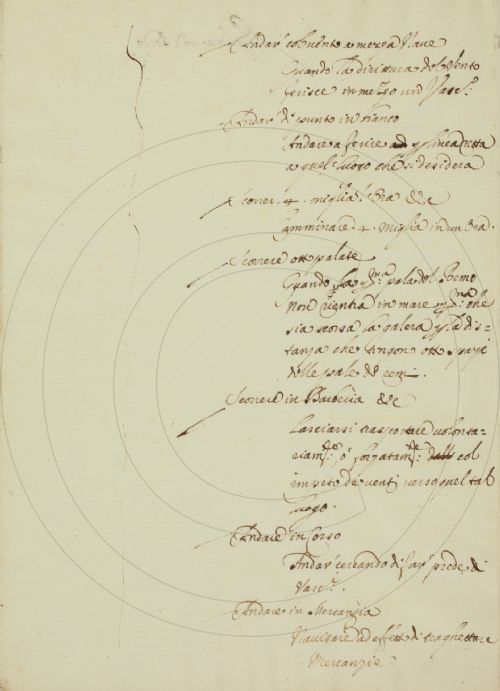 Andar' col vento a mezza Nave
Quando la dirittura del Vento
ferisce in mezzo un Vasc.º
Andar' di punto in bianco
Andare a ferire ad p linea retta
a quel luogo che si desidera
Scorrer 4. miglia l'ora &c
Camminare 4. miglia in un'ora.
Scorrere otto palate
Quando la p.ma pala del Remo
non rientra in mare p.ma che
sia scorsa la galera p la dis-
tanza che tengon otto spazi
delle pale de remi.
Scorrere in Barberia &c
Lasciarsi trasportare volonta-
riam.te o' forzatam.te dall col
impeto de venti verso quel tal
luogo.
Andare in Corso
Andar' cercando di far' prede di
Vasc.i.
Andare in Mercanzia
Navicare ad effetto di traghettare
Mercanzie